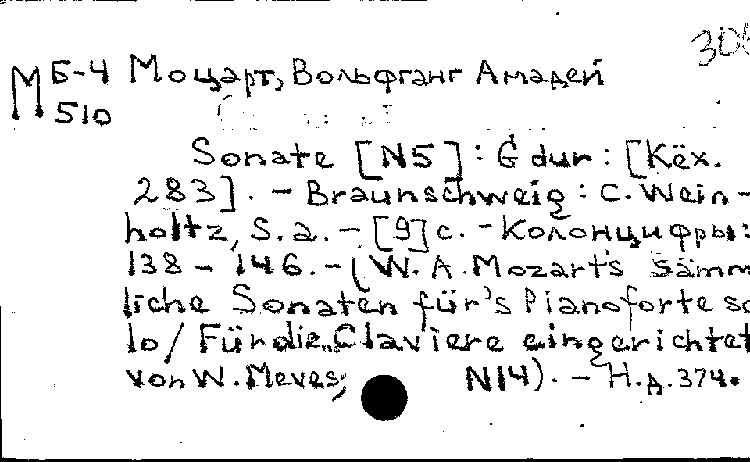 308
М Б-4 Моцарт, Вольфганг Амадей
510
Sonate [N5] : G dur : [Këx.
283]. - Braunschweig : C. Wein-
holtz, S.a. - [9] с. - Колонцифры:
138 - 146. - (W. A. Mozart's Sämm
liche Sonaten für's Pianoforte so
lo / Für die Claviere eingerichtet
von W. Meves; N14). - Н.д. 374.